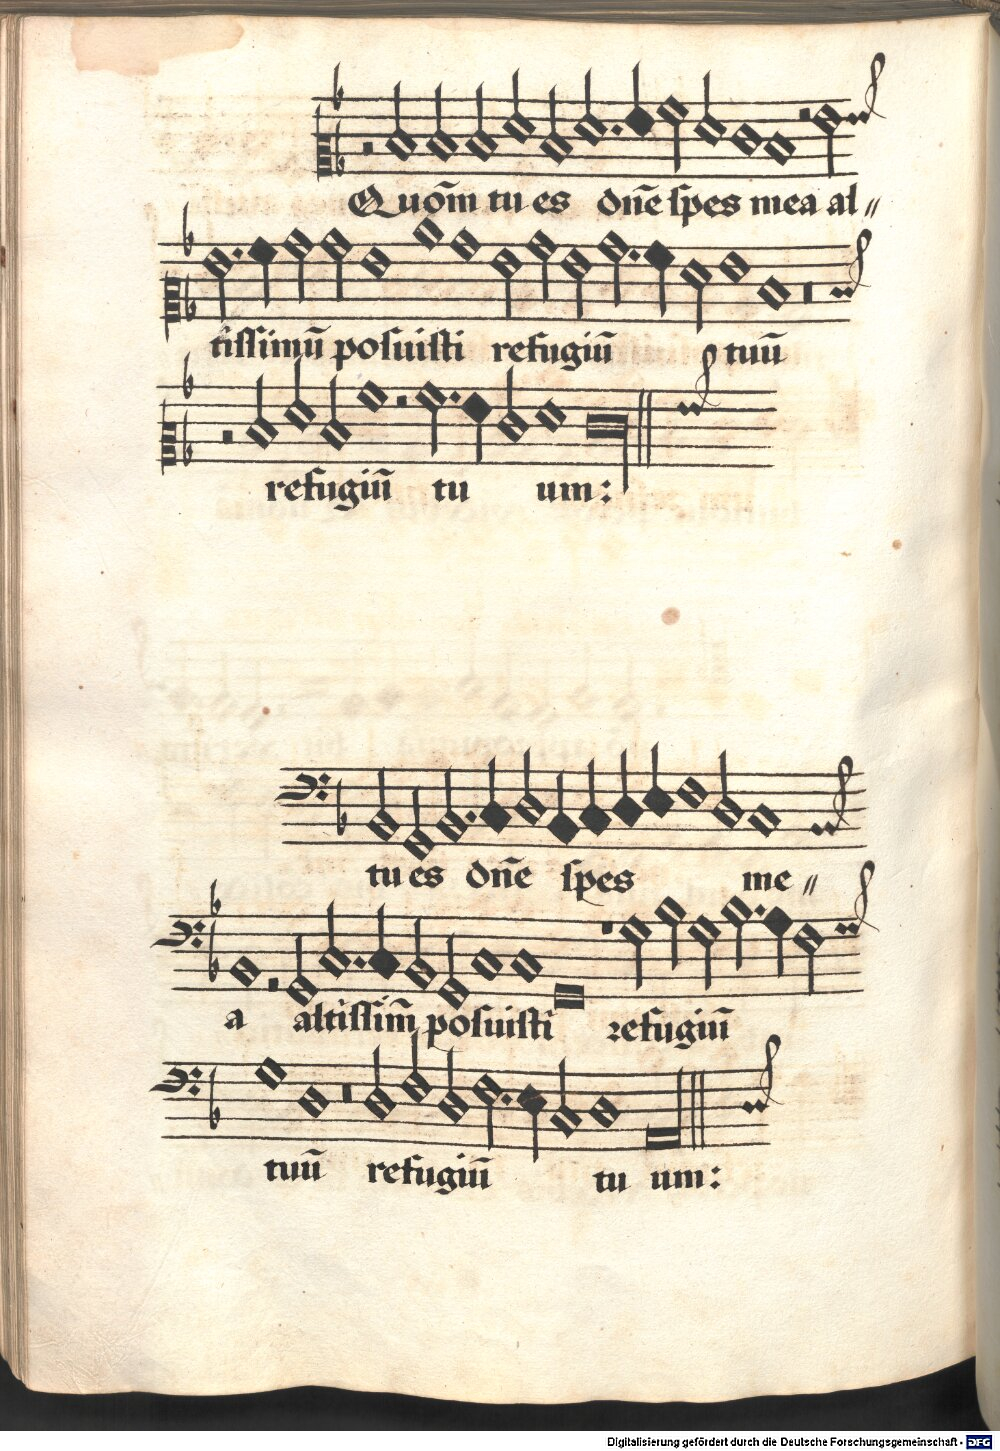 Quom̄ tu es dn̄e spes mea al〃
tissimū posuisti refugiū tuū
refugiū tu um:
tu es dn̄e spes me〃
a altissim̄ posuisti refugiū
tuū refugiū tu um:
Digitalisierung gefördert durch die Deutsche Forschungsgemeinschaft - DFG